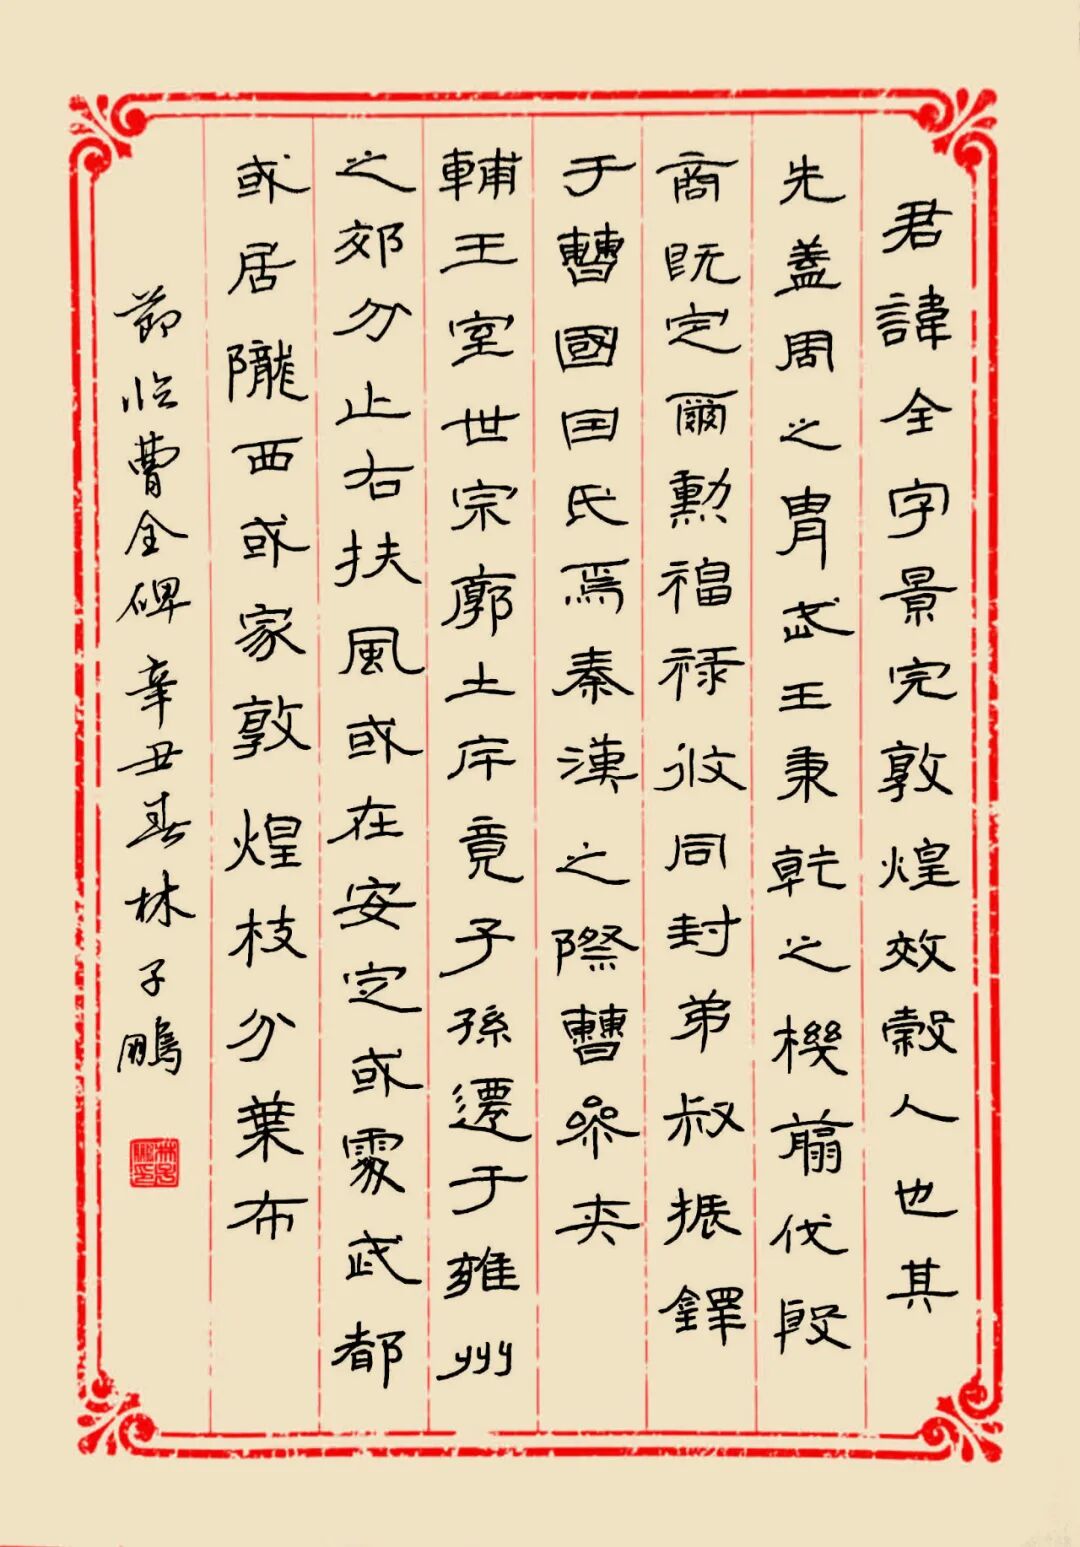 君諱全字景完敦煌效穀人也其
先蓋周之胄武王秉乾之機翦伐殷
商既定爾勲福禄攸同封弟叔振鐸
于曹國因氏焉秦漢之際曹參夾
輔王室世宗廓土斥竟子孫遷于雍州
之郊分止右扶風或在安定或處武都
或居隴西或家敦煌枝分葉布
節临曹全碑辛丑春林子鵬
林子鵬印